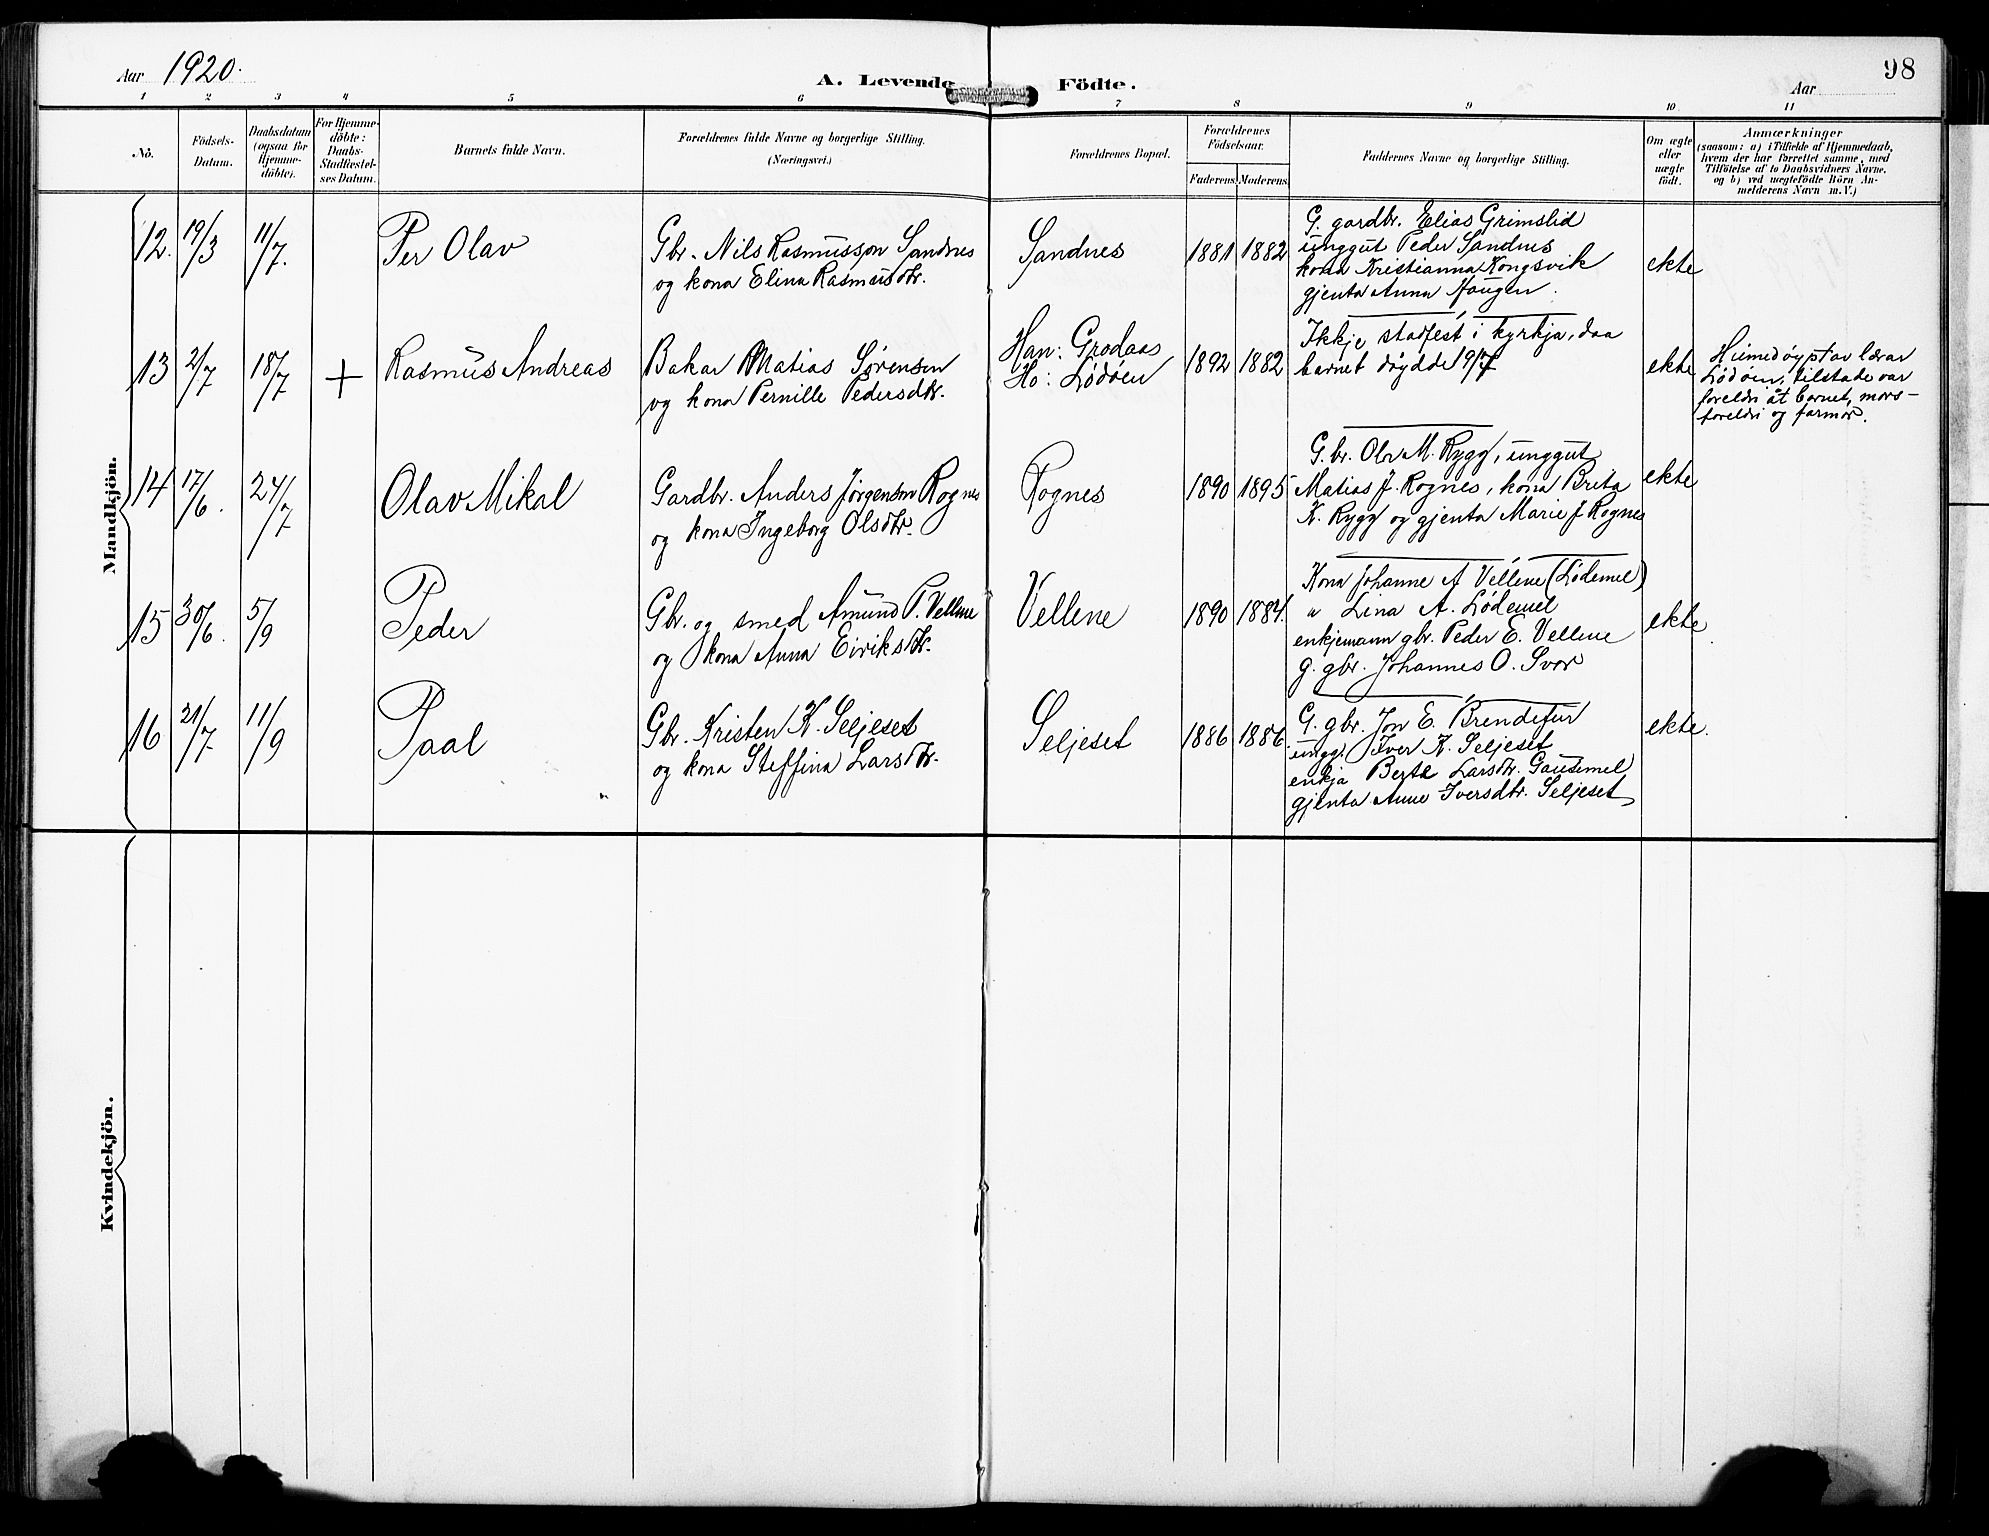 Aar 1920.
A. Levende Födte.
98
Aar
1 2 3 4 5 6 7 8 9 10 11
No.
Födsels-
Datum.
Daabsdatum
(ogsaa for
Hjemme-
döbte).
For Hjemme-
döbte:
Daabs-
Stadfæstel-
ses Datum.
Barnets fulde Navn.
Forældrenes fulde Navne og borgerlige Stilling.
(Næringsvei.)
Forældrenes Bopæl.
Forældrenes
Födselsaar.
Faderens Moderens
Faddernes Navne og borgerlige Stilling.
Om ægte
eller
uægte
födt.
Anmærkninger
(saasom: a) i Tilfælde af Hjemmedaab,
hvem der har forrettet samme, med
Tilföielse af to Daabsvidners Navne.
og b) ved uegtefödte Börn An-
melderens Navn m. V.)
Mandkjön.
12. 19/3 11/7.
Per Olav
Gbr. Nils Rasmusson Sandnes
og kona Elina Rasmusdtr.
Sandnes
1881 1882
G. gardbr. Elias Grimslid
unggut Peder Sandnes
kona Kristianna Kongsvik
gjenta Anna Haugen.
ekte
13 2/7 18/7 +
Rasmus Andreas
Bakar Matias Sørensen
og kona Pernille Pedersdtr.
Han: Grodaas
Ho: Lødøen
1892 1882
Ikkje stadfest i kyrkja, daa
barnet døydde 19/7
ekte
Heimedøypt av lærar
Lødøen, tilstade var
foreldri åt barnet, mors-
foreldri og farmor.
14 17/6. 24/7
Olav Mikal
Gardbr. Anders Jørgenson Rognes
og kona Ingeborg Olsdtr.
Rognes
1890 1895
G.br. Ola M. Rygg, unggut
Matias J. Rognes, kona Brita
K. Rygg og gjenta Marie J Rognes
ekte
15 30/6. 5/9
Peder
Gbr. og smed Amund P. Vellene
og kona Anna Eiriksdtr.
Vellene
1890 1884.
Kona Johanne A Vellene (Lødemel)
" Lina A. Lødemel
enkjemann gbr. Peder E. Vellene
g. gbr. Johannes O. Svor
ekte
16 21/7 11/9
Paal
Gbr. Kristen K. Seljeset
og kona Steffina Larsdtr.
Seljeset
1886 1886.
G. gbr. Jon E. Brendefur
ungg. Iver K. Seljeset
enkja Berte Larsdtr. Gausemel
gjenta Anne Iversdtr. Seljeset
ekte.
Kvindekjön.